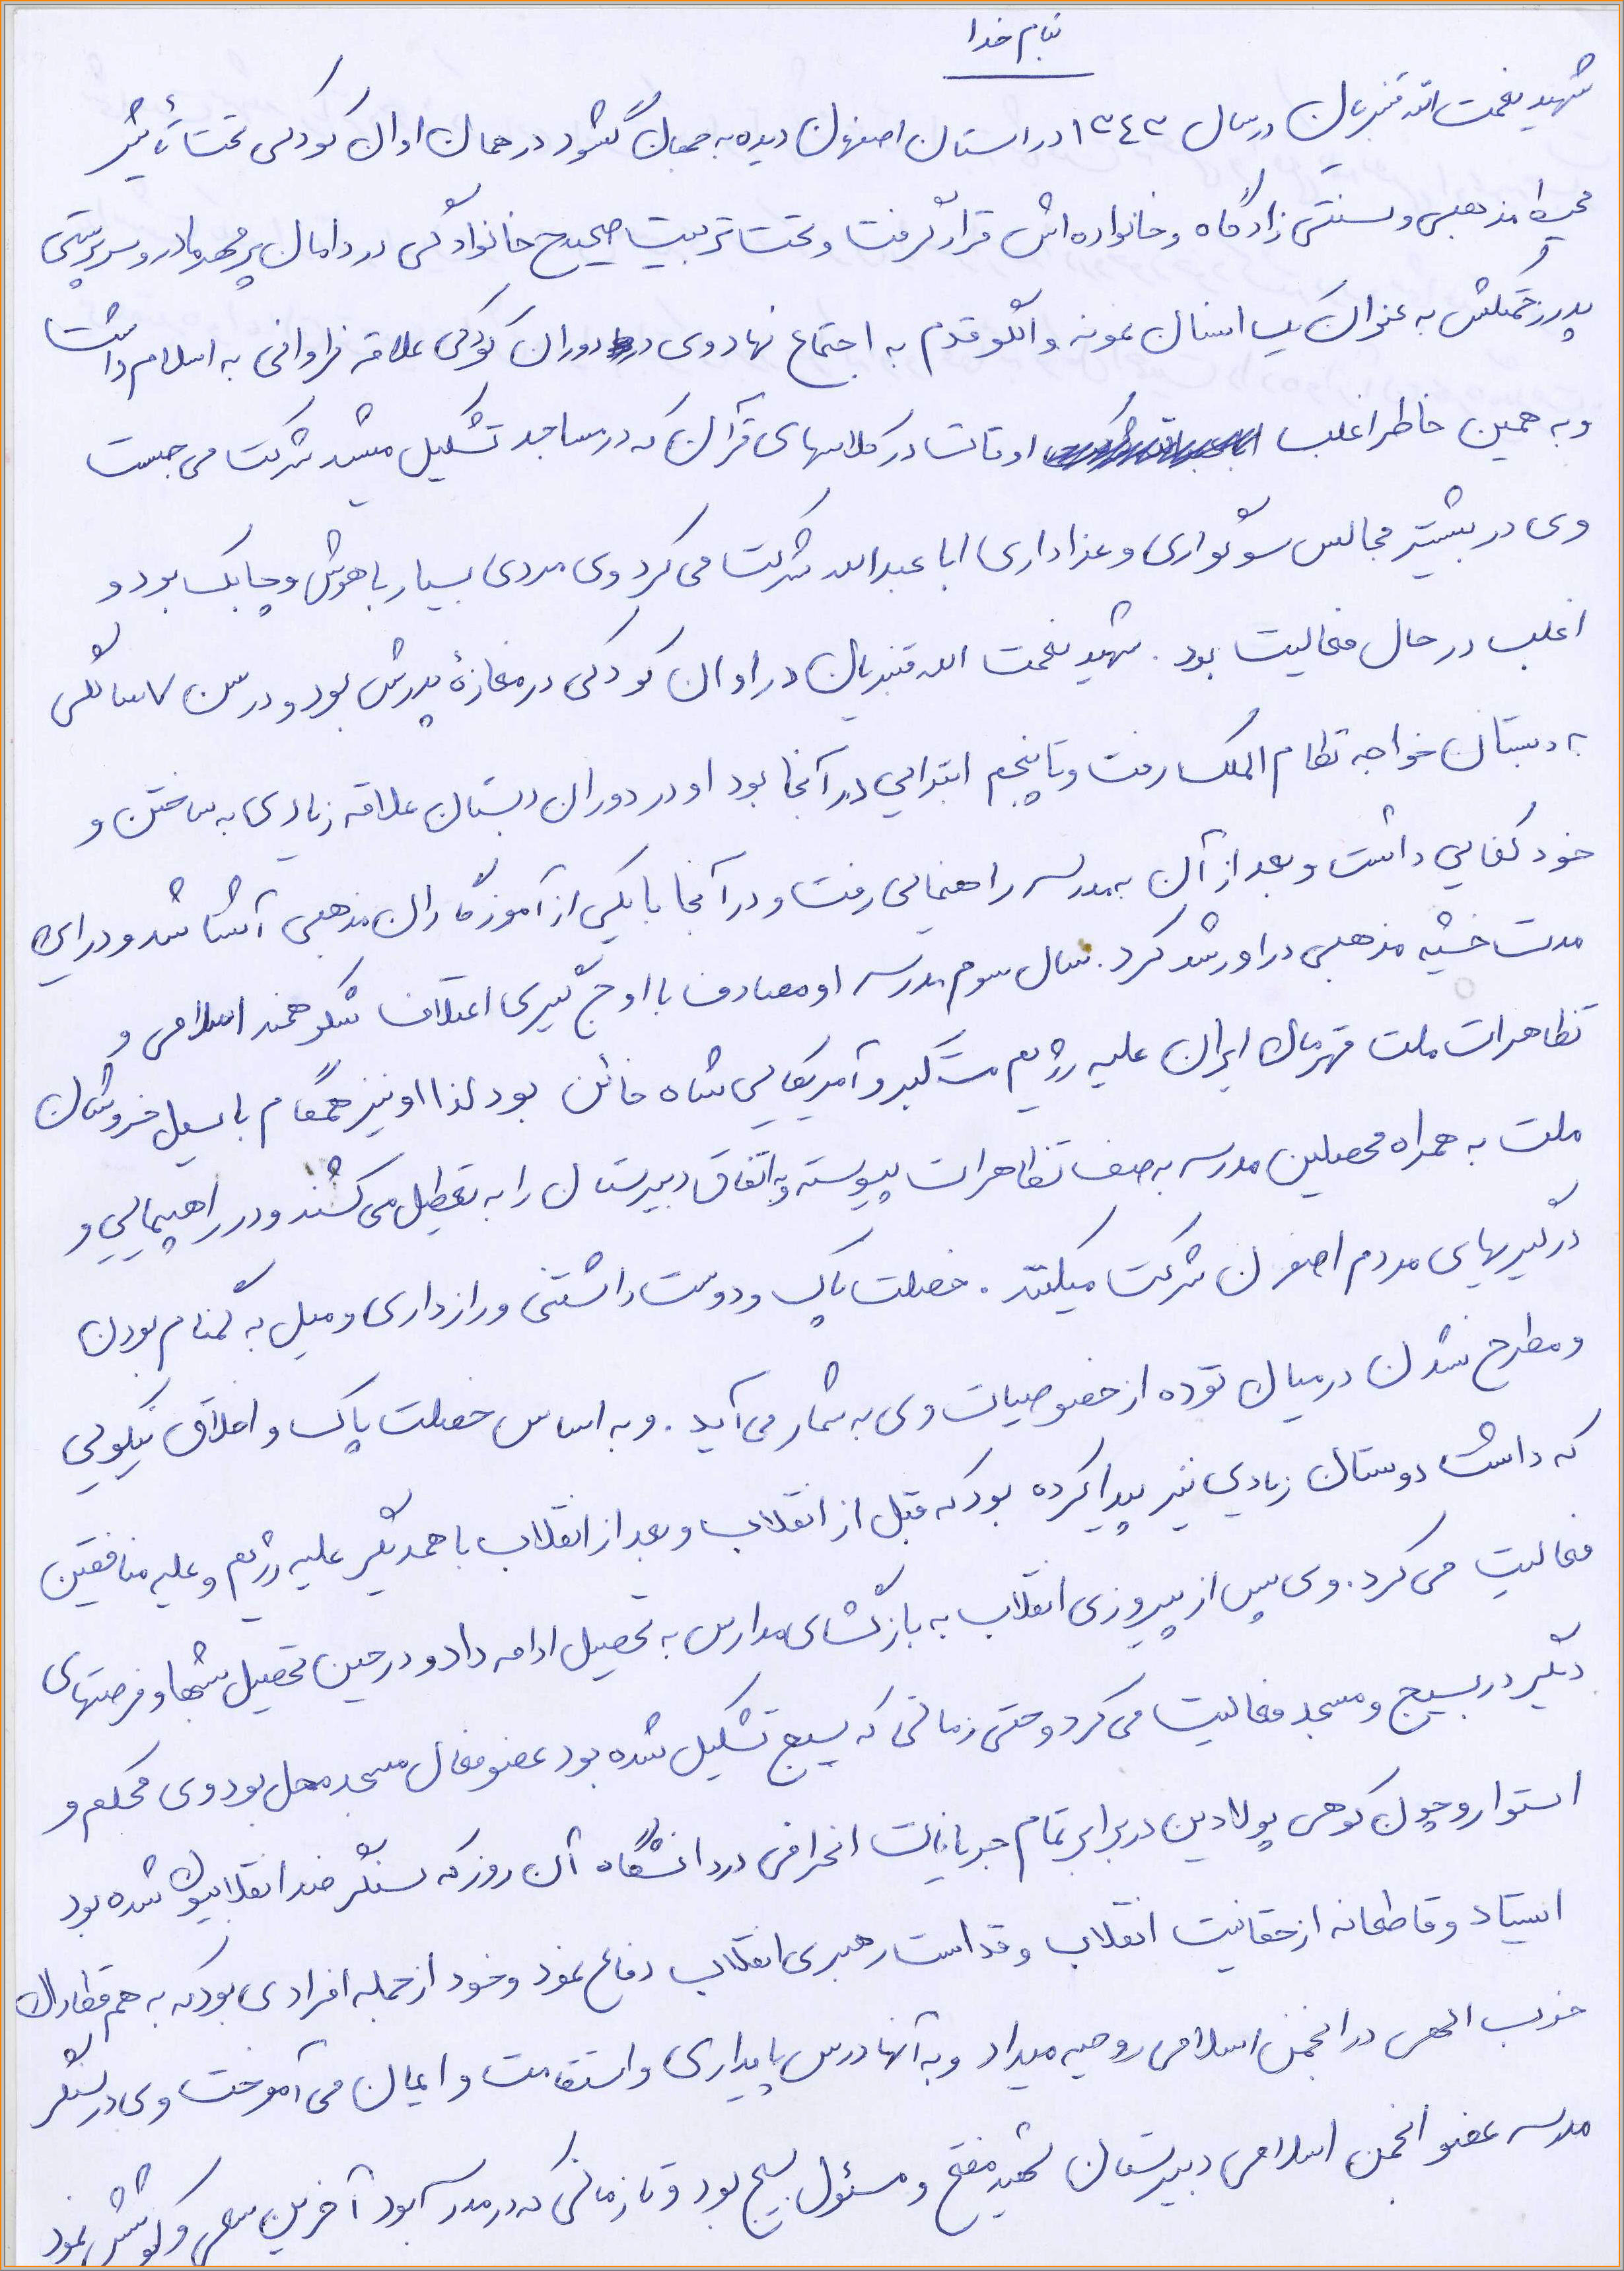 بنام خدا
شهید نعمت الله قنبریان در سال ۱۳۴۳ در استان اصفهان دیده به جهان گشود در همان اوان کودکی تحت تأثیر
محیط مذهبی و سنتی زادگاه و خانواده اش قرار گرفت و تحت تربیت صحیح خانوادگی در دامان پر مهر مادر و سرپرستی
پدر زحمتکش به عنوان یک انسان نمونه و الگو قدم به اجتماع نهاد وی در دوران کودکی علاقه فراوانی به اسلام داشت
و به همین خاطر اغلب اوقات در کلاسهای قرآن که در مساجد تشکیل میشد شرکت می جست
وی در بیشتر مجالس سوگواری و عزاداری ابا عبدالله شرکت می کرد وی مردی بسیار باهوش و چابک بود و
اغلب در حال فعالیت بود . شهید نعمت الله قنبریان در اوان کودکی در مغازهٔ پدرش بود و در سن ۷ سالگی
به دبستان خواجه نظام الملک رفت و تا پنجم ابتدایی در آنجا بود او در دوران دبستان علاقه زیادی به ساختن و
خود کفایی داشت و بعد از آن به مدرسه راهنمایی رفت و در آنجا با یکی از آموزگاران مذهبی آشنا شد و در این
مدت خشیه مذهبی در او رشد کرد . سال سوم مدرسه او مصادف با اوج گیری انقلاب شکوهمند اسلامی و
تظاهرات ملت قهرمان ایران علیه رژیم ستمگر و آمریکایی شاه خائن بود لذا او نیز همگام با سیل خروشان
ملت به همراه محصلین مدرسه به صف تظاهرات پیوسته و به اتفاق دبیرستان را به تعطیل می کشند و در راهپیمایی و
درگیریهای مردم اصفهان شرکت میکنند . خصلت پاک و دوست داشتنی و رازداری و میل به گمنام بودن
و مطرح نشدن در میان توده از خصوصیات وی به شمار می آید . و به اساس خصلت پاک و اخلاق نیکویی
که داشت دوستان زیادی نیز پیدا کرده بود که قبل از انقلاب و بعد از انقلاب با همدیگر علیه رژیم و علیه منافقین
فعالیت می کرد . وی پس از پیروزی انقلاب به بازگشای مدارس به تحصیل ادامه داد و در حین تحصیل شبها و فرصتهای
دیگر در بسیج و مسجد فعالیت می کرد و حتی زمانی که بسیج تشکیل شده بود عضو فعال مسجد محل بود وی محکم و
استوار و چون کوهی پولادین در برابر تمام جریانات انحرافی در دانشگاه آن روز که سنگر ضد انقلابیون شده بود
ایستاد و قاطعانه از حقانیت انقلاب و قداست رهبری انقلاب دفاع نمود و خود از جمله افرادی بود که به هم قطاران
حزب الهی در انجمن اسلامی روحیه میداد و به آنها درس پایداری و استقامت و ایمان می آموخت وی در سنگر
مدرسه عضو انجمن اسلامی دبیرستان شهید مفتح و مسئول بسیج بود و تا زمانی که در مدرسه بود آخرین سعی و کوشش نمود